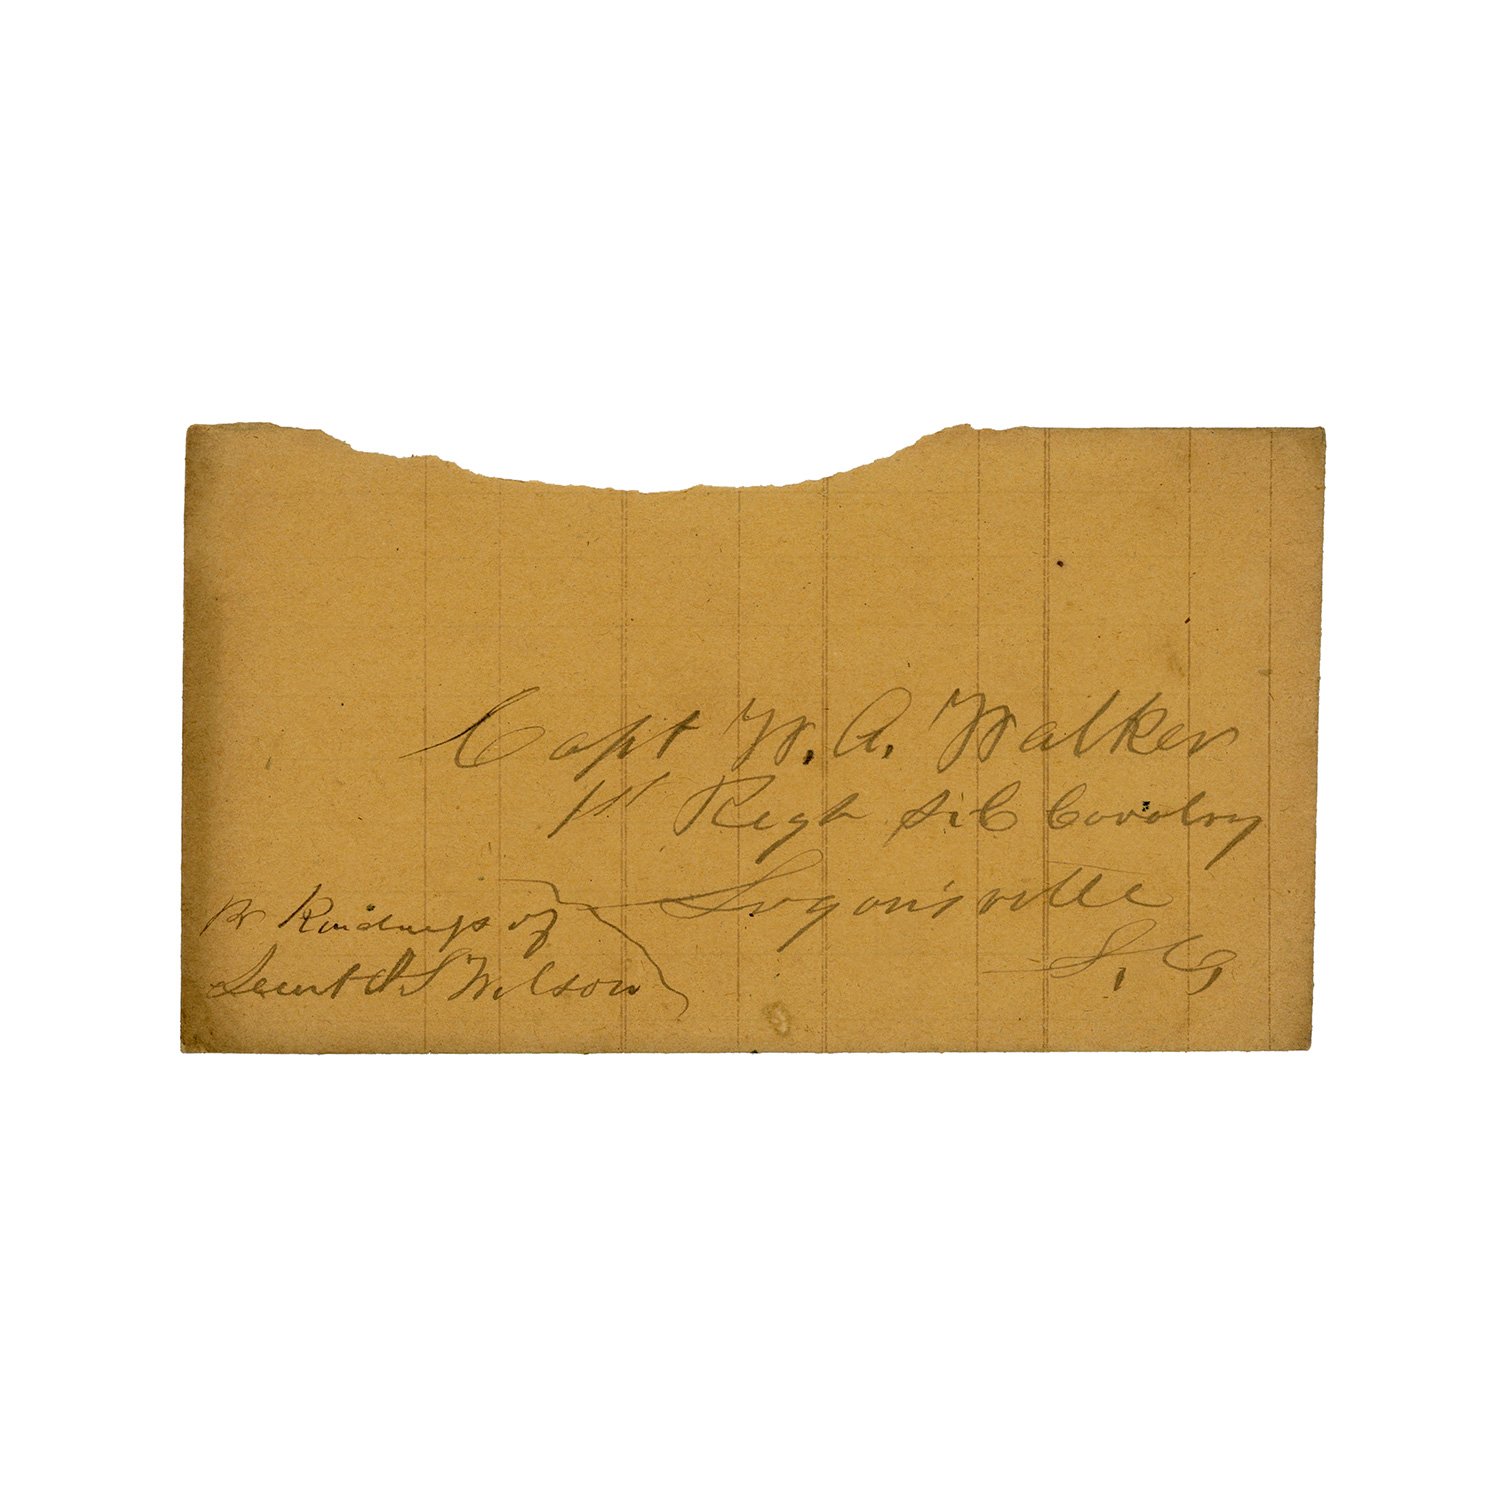 Capt W. A. Walker
1st Regt S. C Cavalry
S. C,
Pr Kindness of
Lieut S Wilson